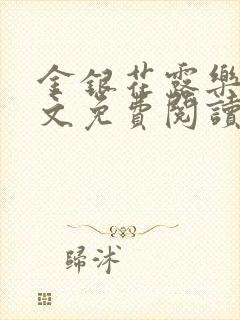 金銀花露樂
文免費閱讀
歸沭